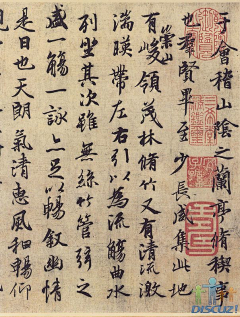 于會稽山陰之蘭亭脩稧事
也羣賢畢至少長咸集此地
有崇山峻領茂林脩竹又有清流激
湍暎帶左右引以為流觴曲水
列坐其次雖無絲竹管弦之
盛一觴一詠亦足以暢叙幽情
是日也天朗氣清惠風和暢仰
DISCUZ!